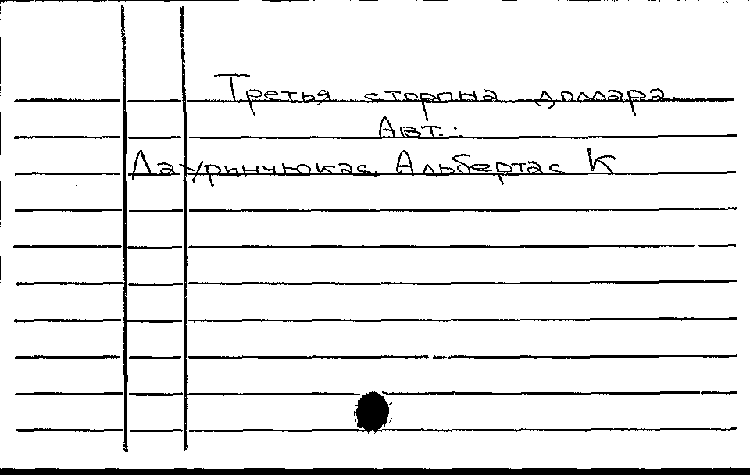 Третья сторона доллара
Авт.:
Лауринчюкас Альбертас К